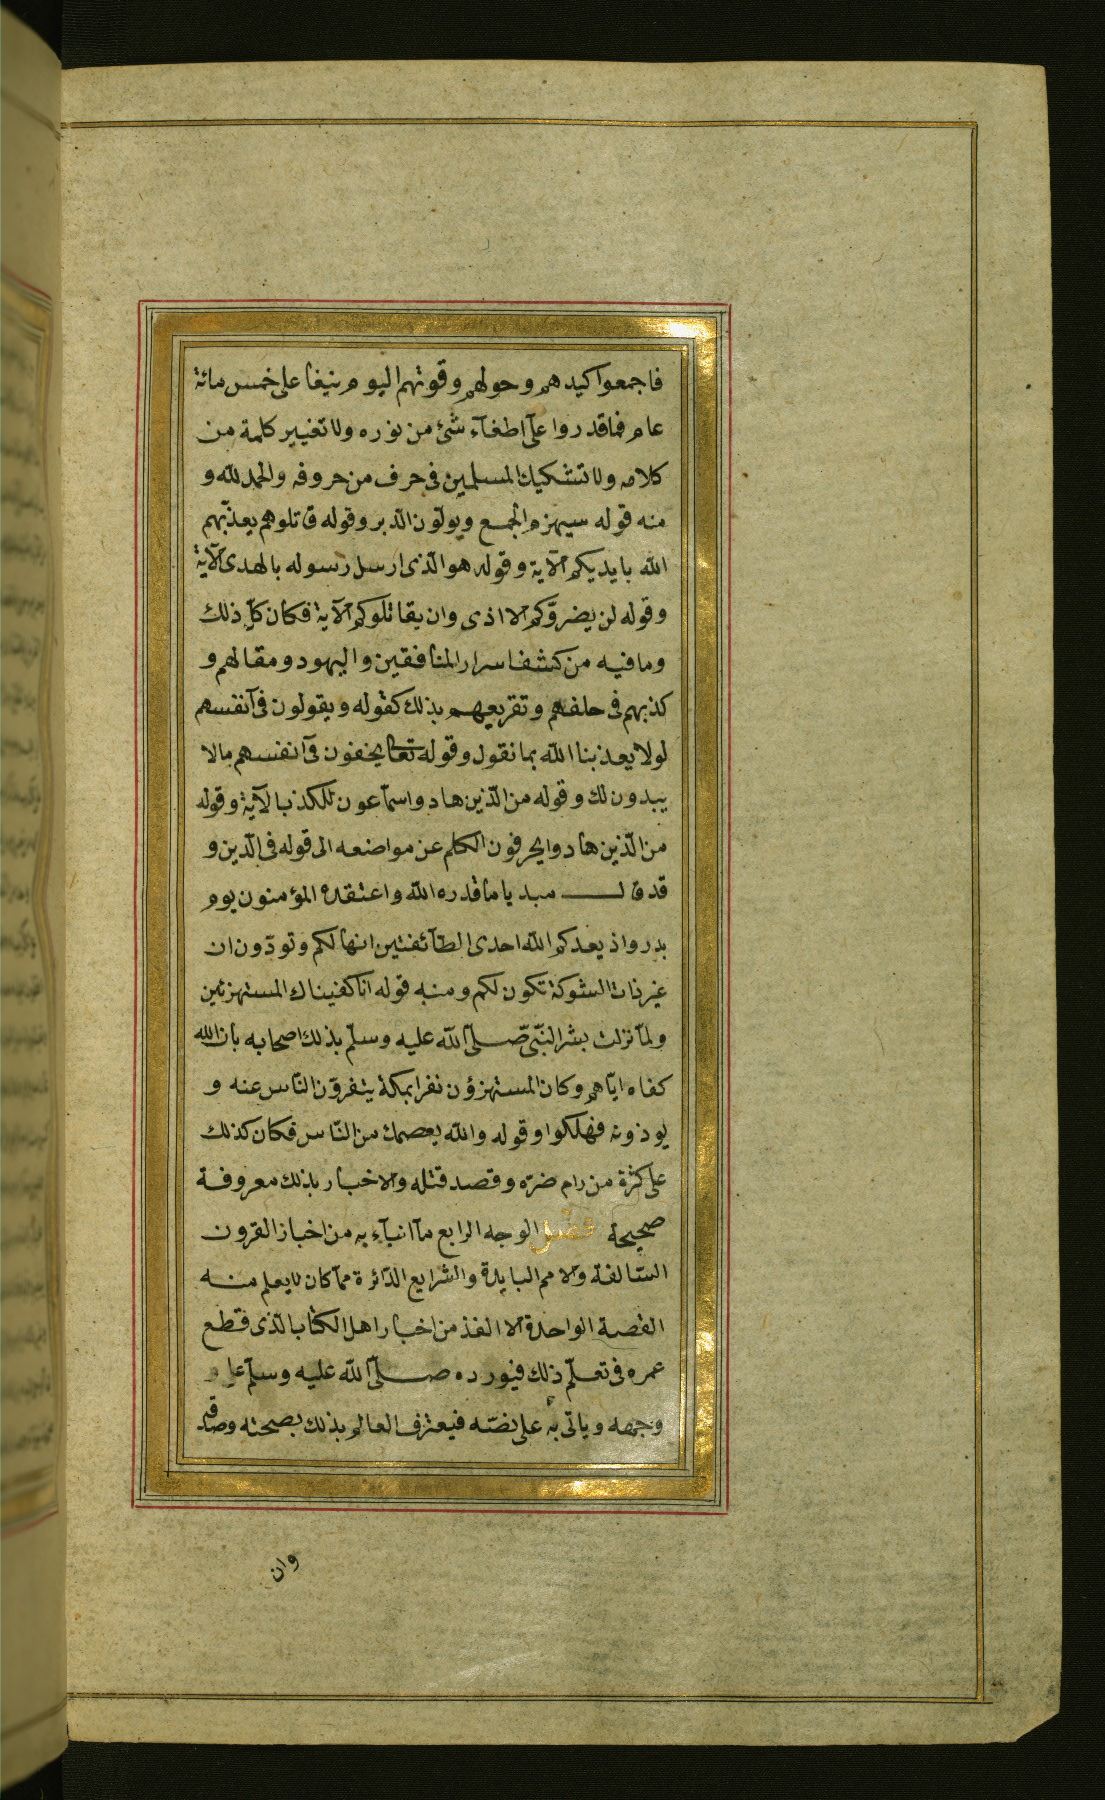 فاجمعوا كيدهم وحولهم وقوتهم اليوم نيفا على خمس مائة
عام فما قدروا على اطفاء شئ من نوره ولا تغيير كلمة من
كلامه ولا تشكيك المسلمين فى حرف من حروفه والحمد لله و
منه قوله سيهزم الجمع ويولون الدبر وقوله قاتلوهم يعذبهم
الله بايديكم الآية وقوله هو الذى ارسل رسوله بالهدى الآية
وقوله لن يضروكم الا اذى وان يقاتلوكم الآية فكان كل ذلك
وما فيه من كشف اسرار المنافقين واليهود ومقالهم و
كذبهم فى حلفهم وتقريعهم بذلك كقوله ويقولون فى انفسهم
لولا يعذبنا الله بما نقول وقوله تعالى يخفون فى انفسهم ما لا
يبدون لك وقوله من الذين هادوا سماعون للكذب الآية وقوله
من الذين هادوا يحرفون الكلم عن مواضعه الى قوله فى الدين و
قد قال مبديا ما قدره الله واعتقده المؤمنون يوم
بدر واذ يعدكم الله احدى الطائفتين انها لكم وتودون ان
غير ذات الشوكة تكون لكم ومنه قوله انا كفيناك المستهزئين
ولما نزلت بشر النبى صلى الله عليه وسلم بذلك اصحابه بان الله
كفاه اياهم وكان المستهزؤن نفرا بمكة ينفرون الناس عنه و
يوذونه فهلكوا وقوله والله يعصمك من الناس فكان كذلك
على كثرة من رام ضره وقصد قتله والاخبار بذلك معروفة
صحيحة فصل الوجه الرابع ما انباء به من اخبار القرون
السالفة والامم البايدة والشرايع الداثرة مما كان لا يعلم منه
القصة الواحدة الا الفذ من اخبار اهل الكتاب الذى قطع
عمره فى تعلم ذلك فيورده صلى الله عليه وسلم على
وجهه وياتى به على نصه فيعترف العالم بذلك بصحته وصدقه
وان